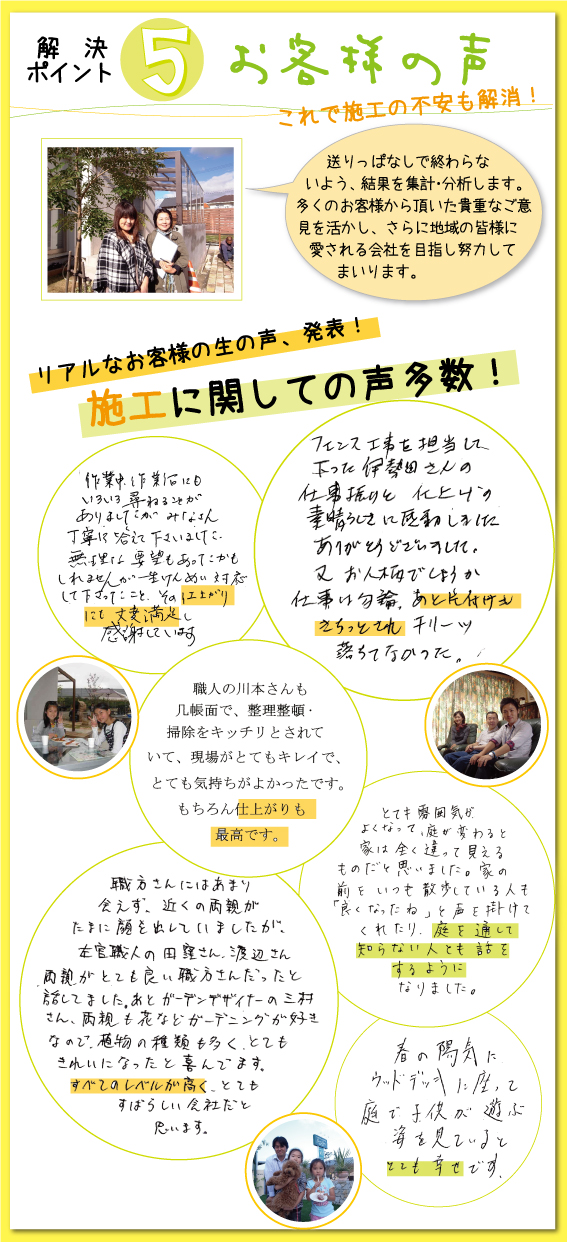 解決
ポイント
5
お客様の声
これで施工の不安も解消！
送りっぱなしで終わらな
いよう、結果を集計・分析します。
多くのお客様から頂いた貴重なご意
見を活かし、さらに地域の皆様に
愛される会社を目指し努力して
まいります。
リアルなお客様の生の声、発表！
施工に関しての声多数！
作業中、作業后にも
いろいろ尋ねる事が
ありましたが みなさん
丁寧に答えて下さいました。
無理な要望もあったかも
しれませんが一生けんめい対応
して下さったこと、その仕上がり
にも大変満足し
感謝しています
フェンス工事を担当して
下さった伊勢田さんの
仕事振りと 仕上げの
素晴らしさに感動しました
ありがとうございました。
又 お人柄でしょうか
仕事は勿論、あと片付けも
きちっとされ チリ一ツ
落ちてなかった。
職人の川本さんも
几帳面で、整理整頓・
掃除をキッチリとされて
いて、現場がとてもキレイで、
とても気持ちがよかったです。
もちろん仕上がりも
最高です。
とても雰囲気が
よくなって、庭が変わると
家は全く違って見える
ものだと思いました。家の
前をいつも散歩している人も
「良くなったね」と声を掛けて
くれたり、庭を通して
知らない人とも話を
するように
なりました。
職方さんにはあまり
会えず、近くの両親が
たまに顔を出していましたが、
左官職人の田窪さん、渡辺さん
両親がとても良い職方さんだったと
話してました。あとガーデンデザイナーの三村
さん、両親も花などガーデニングが好き
なので、植物の種類も多く、とても
きれいになったと喜んでます。
すべてのレベルが高く、とても
すばらしい会社だと
思います。
春の陽気に
ウッドデッキに座って
庭で子供が遊ぶ
姿を見ていると
とても幸せです。